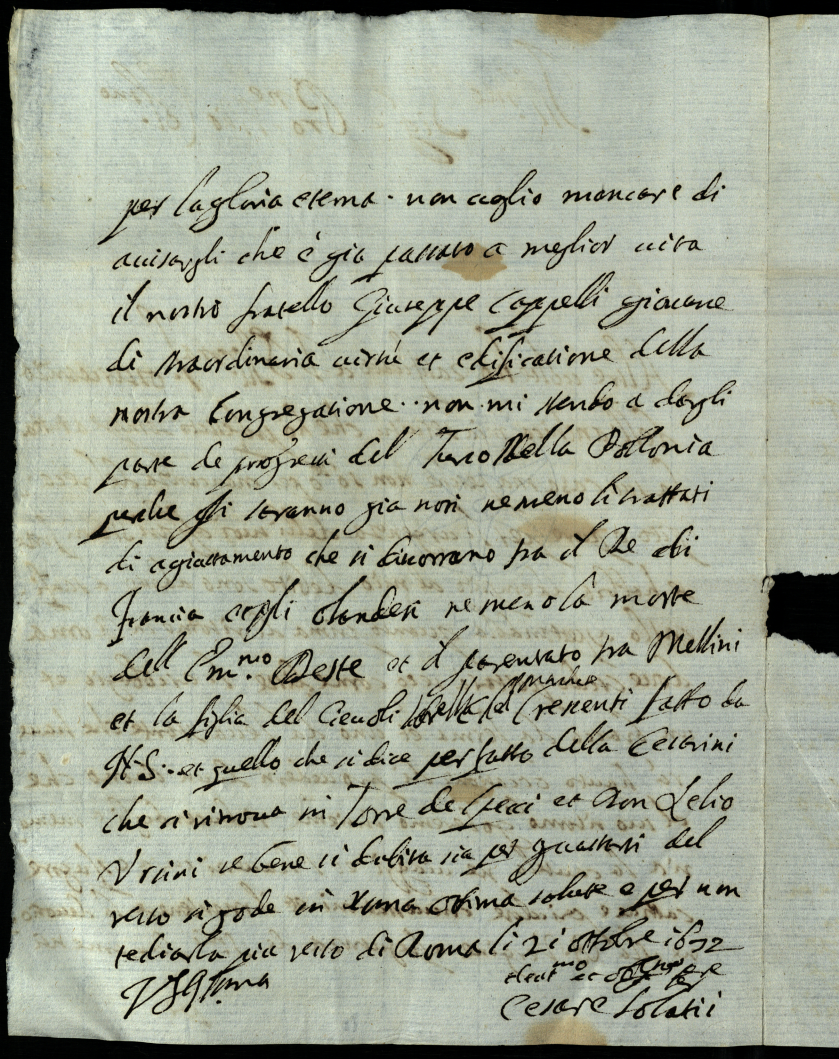 per la gloria eterna. non uoglio mancare di
auisargli che è gia passato a meglior uita
il nostro fratello Giuseppe Cappelli giouane
di straordinaria uirtù et edificatione della
nostra Congregatione. non mi stendo a dargli
parte de progressi del Turco Nella Pollonia
perche gli saranno gia noti ne meno li trattati
di agiustamento che si discorrano tra il Re di
Francia e gli olandesi ne meno la morte
dell Em.mo Deste et il parentato tra Mellini
et la figlia del Cieuoli sorella del Crescenti fatto da
N.S. et quello che si dice per fatto della Cesarini
che si ritroua in Torre de Specci et Don Lelio
Ursini se bene si dubita sia per guastarsi del
resto si gode in Roma ottima salute e per non
tediarla piu resto di Roma li 21 ottobre 1672
VS Ill.ma
Cesare Solatii